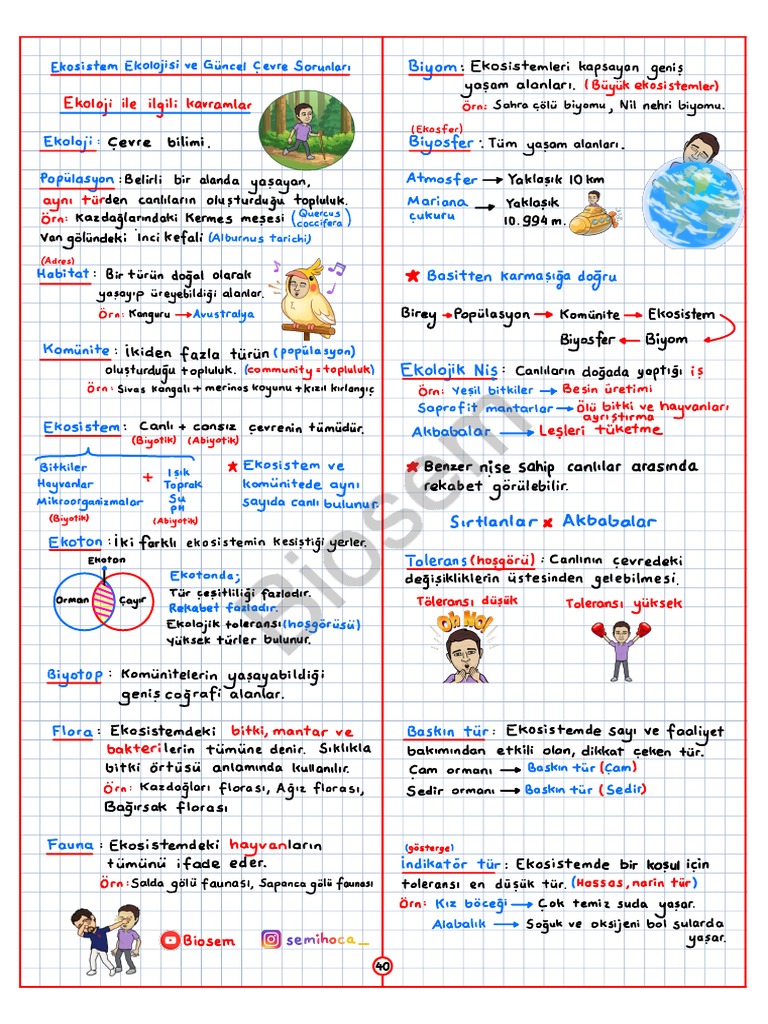 Ekosistem Ekolojisi ve Güncel Çevre Sorunları
Ekoloji ile ilgili kavramlar
Ekoloji: Çevre bilimi.
Popülasyon: Belirli bir alanda yaşayan,
aynı türden canlıların oluşturduğu topluluk.
Örn: Kazdağlarındaki Kermes meşesi (Quercus coccifera)
Van gölündeki inci kefali (Alburnus tarichi)
(Adres)
Habitat: Bir türün doğal olarak
yaşayıp üreyebildiği alanlar.
Örn: Kanguru → Avustralya
Komünite: İkiden fazla türün (popülasyon)
oluşturduğu topluluk. (community = topluluk)
Örn: Sivas kangalı + merinos koyunu + kızıl kırlangıç
Ekosistem: Canlı + cansız çevrenin tümüdür.
(Biyotik) (Abiyotik)
Bitkiler
Hayvanlar
Mikroorganizmalar
(Biyotik)
+
Işık
Toprak
Su
pH
(Abiyotik)
* Ekosistem ve
komünitede aynı
sayıda canlı bulunur.
Ekoton: İki farklı ekosistemin kesiştiği yerler.
Ekoton
Orman
Çayır
Ekotonda;
Tür çeşitliliği fazladır.
Rekabet fazladır.
Ekolojik toleransı (hoşgörüsü)
yüksek türler bulunur.
Biyotop: Komünitelerin yaşayabildiği
geniş coğrafi alanlar.
Flora: Ekosistemdeki bitki, mantar ve
bakterilerin tümüne denir. Sıklıkla
bitki örtüsü anlamında kullanılır.
Örn: Kazdağları florası, Ağız florası,
Bağırsak florası
Fauna: Ekosistemdeki hayvanların
tümünü ifade eder.
Örn: Salda gölü faunası, Sapanca gölü faunası
Biosem
semihoca_
Biyom: Ekosistemleri kapsayan geniş
yaşam alanları. (Büyük ekosistemler)
Örn: Sahra çölü biyomu, Nil nehri biyomu.
(Ekosfer)
Biyosfer: Tüm yaşam alanları.
Atmosfer → Yaklaşık 10 km
Mariana çukuru → Yaklaşık 10.994 m.
* Basitten karmaşığa doğru
Birey → Popülasyon → Komünite → Ekosistem
Biyosfer ← Biyom
Ekolojik Niş: Canlıların doğada yaptığı iş
Örn: Yeşil bitkiler → Besin üretimi
Saprofit mantarlar → Ölü bitki ve hayvanları
ayrıştırma
Akbabalar → Leşleri tüketme
* Benzer nişe sahip canlılar arasında
rekabet görülebilir.
Sırtlanlar x Akbabalar
Tolerans (hoşgörü): Canlının çevredeki
değişikliklerin üstesinden gelebilmesi.
Töleransı düşük
Toleransı yüksek
Oh No!
Baskın tür: Ekosistemde sayı ve faaliyet
bakımından etkili olan, dikkat çeken tür.
Çam ormanı → Baskın tür (Çam)
Sedir ormanı → Baskın tür (Sedir)
(gösterge)
İndikatör tür: Ekosistemde bir koşul için
toleransı en düşük tür. (Hassas, narin tür)
Örn: Kız böceği → Çok temiz suda yaşar.
Alabalık → Soğuk ve oksijeni bol sularda
yaşar.
40
Biosem